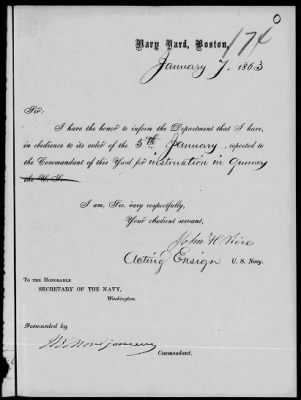 0
174
Navy Yard, Boston,
January 7. 1863
Sir:
I have the honor to inform the Department that I have,
in obedience to its order of the 5th January, reported to
the Commandant of this Yard for instruction in Gunnery
the U. S.
I am, Sir, very respectfully,
Your obedient servant,
John H
Acting Ensign U. S. Navy.
To the Honorable
SECRETARY OF THE NAVY,
Washington.
Forwarded by
Montgomery
Commandant.